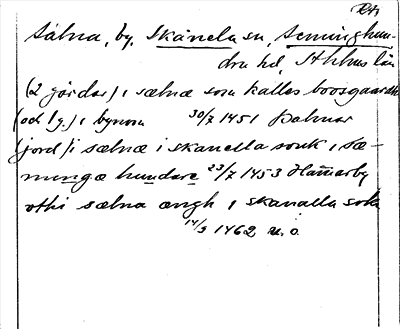 Sälna, by, Skånela sn, Seminghun-
dra hd, Sthlms län
(2 gårdar) i sælnæ som kalles boosgaardh
(och 1 g.) i bynom 30/7 1451 Dalmar
(jord) i sælnæ i skanella sonk i sæ-
mingæ hundare 23/7 1453 Hamarby
othi sælna ængh i skanalla sokn
14/3 1462 m. o